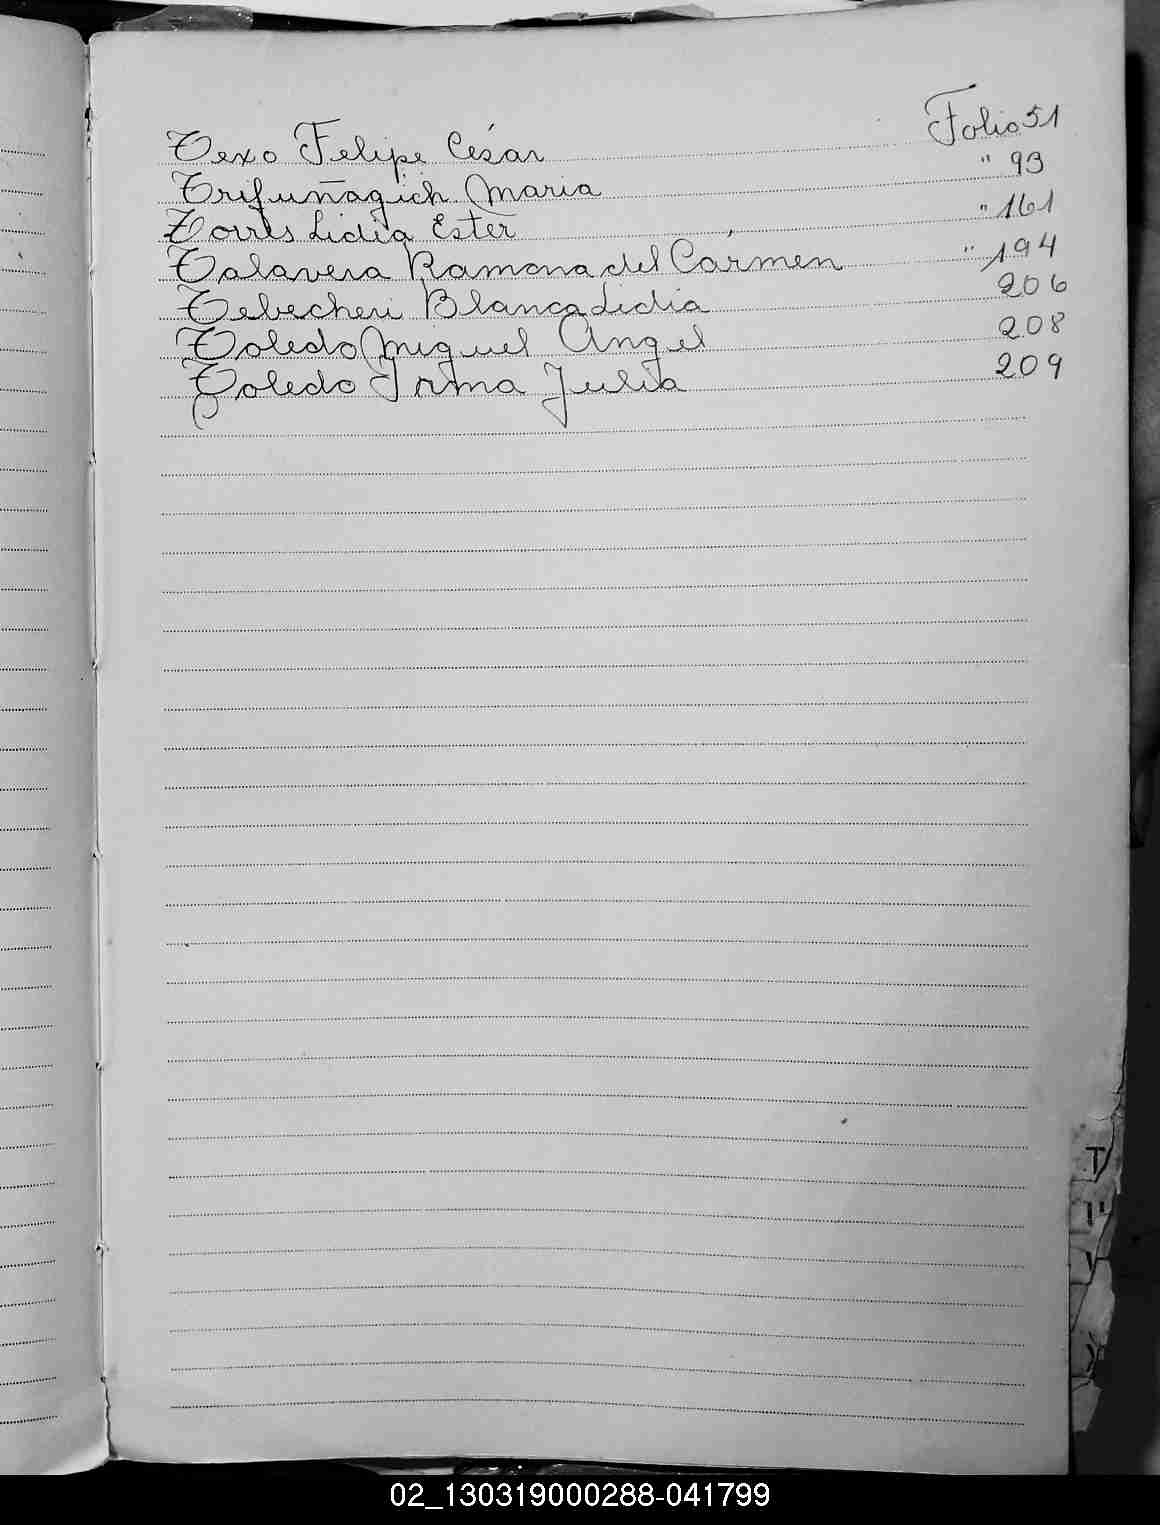 Texo Felipe César Folio 51
Trifuñagich Maria " 93
Torres Lidia Ester " 161
Talavera Ramona del Cármen " 194
Tebecheri Blanca Lidia 206
Toledo Miguel Angel 208
Toledo Irma Julia 209
T
02_130319000288-041799